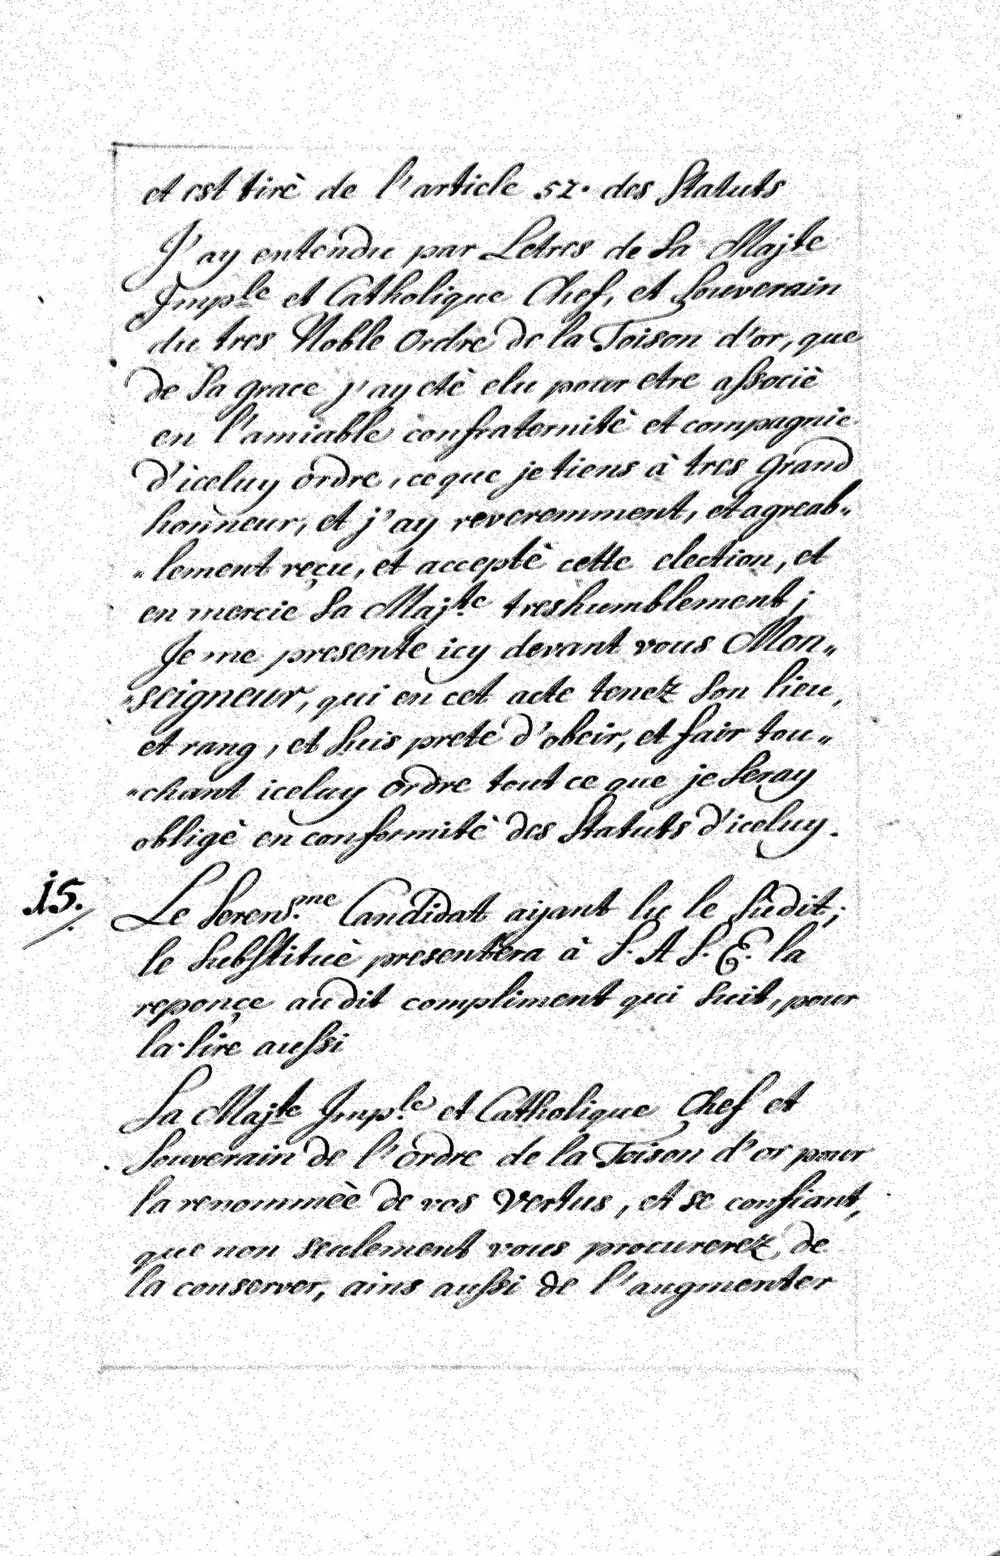 et est tirè de l'article 52. des Statuts
J'ay entendu par Letres de Sa Maj.te
Imp.le et Catholique Chef, et Souverain
du tres Noble Ordre de la Toison d'or, que
de Sa grace j'ay etè elu pour etre associè
en l'amiable confraternitè et compagnie
d'iceluy ordre, ce que je tiens à tres grand
honneur, et j'ay reveremment, et agreab"
"lement reçu, et acceptè cette election, et
en mercie Sa Maj.te treshumblement;
Je me presente icy devant vous Mon"
"seigneur, qui en cet acte tenez Son lieu,
et rang, et Suis pretè d'obeir, et fair tou"
"chant iceluy ordre tout ce que je Seray
obligè en conformitè des Statuts d'iceluy.
15. Le Seren.me Candidat ayant lu le Sùdit;
le Substituè presentera à S. A. S. E. la
reponçe audit compliment qui Suit, pour
la lire aussi
Sa Maj.te Imp.le et Catholique Chef et
Souverain de l'ordre de la Toison d'or pour
la renommèe de vos Vertus, et se confiant,
que non seulement vous procurerez de
la conserver, ains aussi de l'augmenter